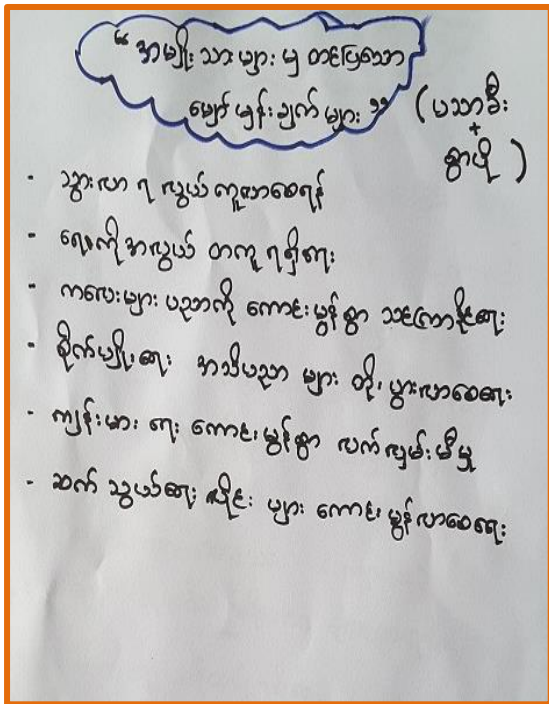 “ အမျိုးသားများမှ တင်ပြသော
မျှော်မှန်းချက်များ ”
(ပသာခီး
+
စွာပို)
- သွားလာရလွယ်ကူလာစေရန်
- ရေကိုအလွယ်တကူရရှိရေး
- ကလေးများပညာကို ကောင်းမွန်စွာ သင်ကြားနိုင်ရေး
- စိုက်ပျိုးရေး အသိပညာများ တိုးပွားလာစေရေး
- ကျန်းမာရေး ကောင်းမွန်စွာ လက်လှမ်းမီမှု
- ဆက်သွယ်ရေးလိုင်းများ ကောင်းမွန်လာစေရေး